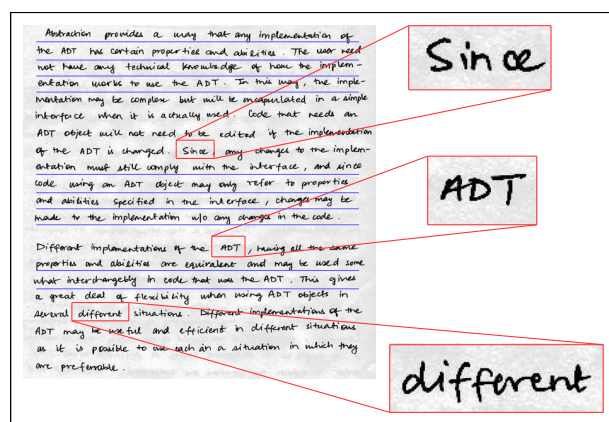 Abstraction provides a way that any implementation of
the ADT has certain properties and abilities. The user need
not have any technical knowledge of how the implem-
entation works to use the ADT. In this way, the imple-
mentation may be complex but will be encapsulated in a simple
interface when it is actually used. Code that needs an
ADT object will not need to be edited if the implementation
of the ADT is changed. Since, any changes to the implem-
entation must still comply with the interface, and since
code using an ADT object may only refer to properties
and abilities specified in the interface, changes may be
made to the implementation w/o any changes in the code.
Different implementations of the ADT, having all the same
properties and abilities are equivalent and may be used some
what interchangebly in code that uses the ADT. This gives
a great deal of flexibility when using ADT objects in
several different situations. Different implementations of the
ADT may be useful and efficient in different situations
as it is possible to use each in a situation in which they
are preferrable.
Since
ADT
different